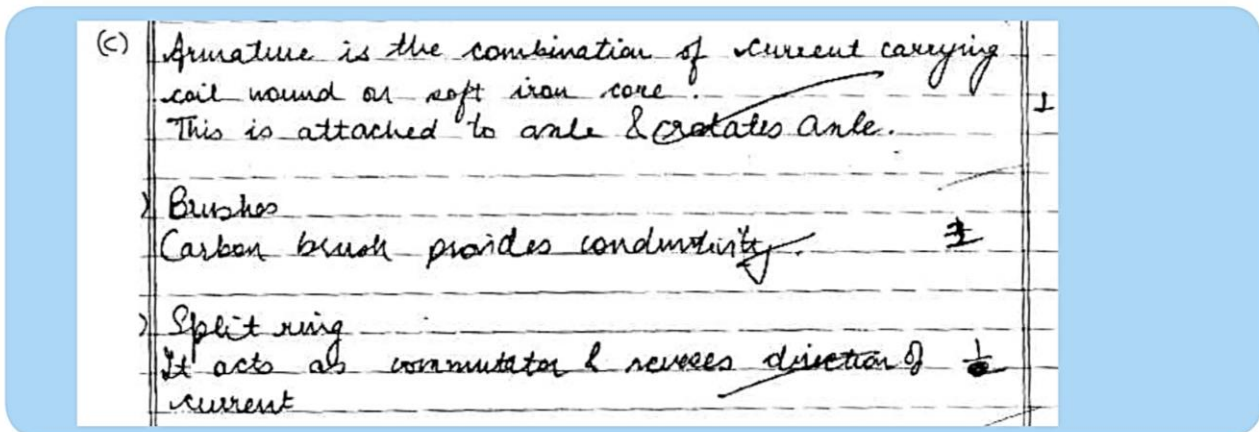 (c) Armature is the combination of current carrying
coil wound on soft iron core.
This is attached to axle & rotates axle.
1
) Brushes
Carbon brush provides conductivity.
) Split ring
It acts as commutator & reverses direction of
current